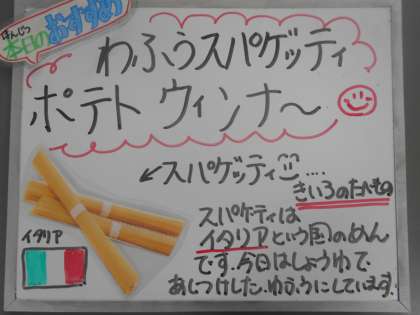 ほんじつ
本日のおすすめ
わふうスパゲッティ
ポテト ウィンナ～
←スパゲッティ....
きいろのたべもの
スパゲティは
イタリアという国のめん
イタリア
です.今日はしょうゆで
あじつけした.わふうにしています.